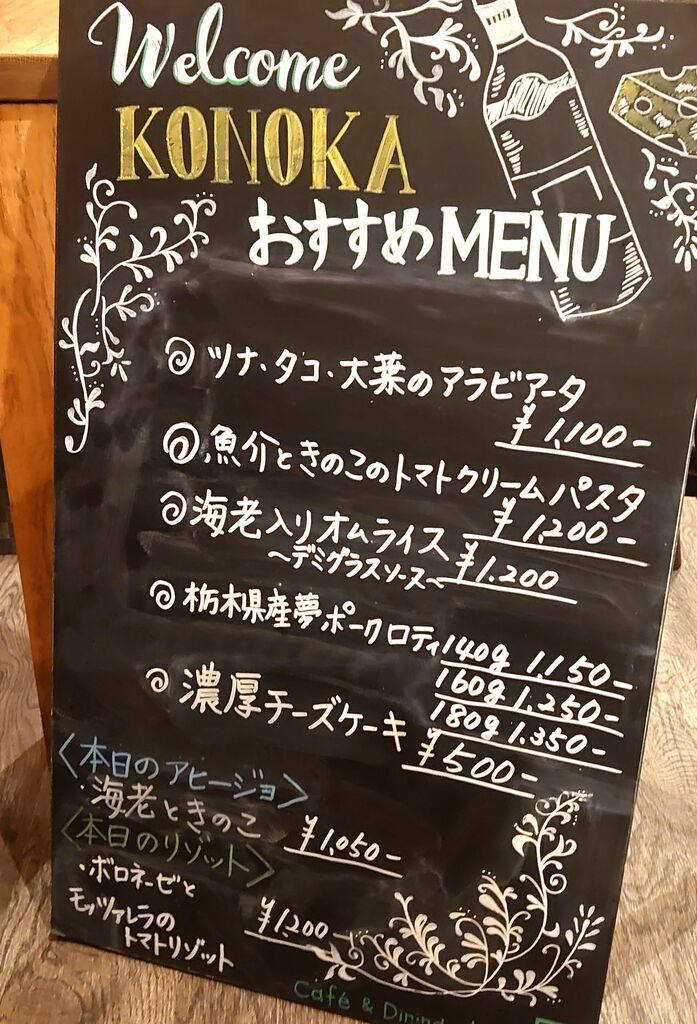 Welcome
KONOKA
おすすめMENU
ツナ・タコ・大葉のアラビアータ
¥1,100-
魚介ときのこのトマトクリームパスタ
¥1,200-
海老入りオムライス
〜デミグラスソース〜
¥1.200
栃木県産夢ポークロティ
140g 1,150-
160g 1,250-
180g 1,350-
濃厚チーズケーキ
¥500-
〈本日のアヒージョ〉
・海老ときのこ
¥1,050-
〈本日のリゾット〉
・ボロネーゼと
モッツァレラの
トマトリゾット
¥1,200-
Café & Dining